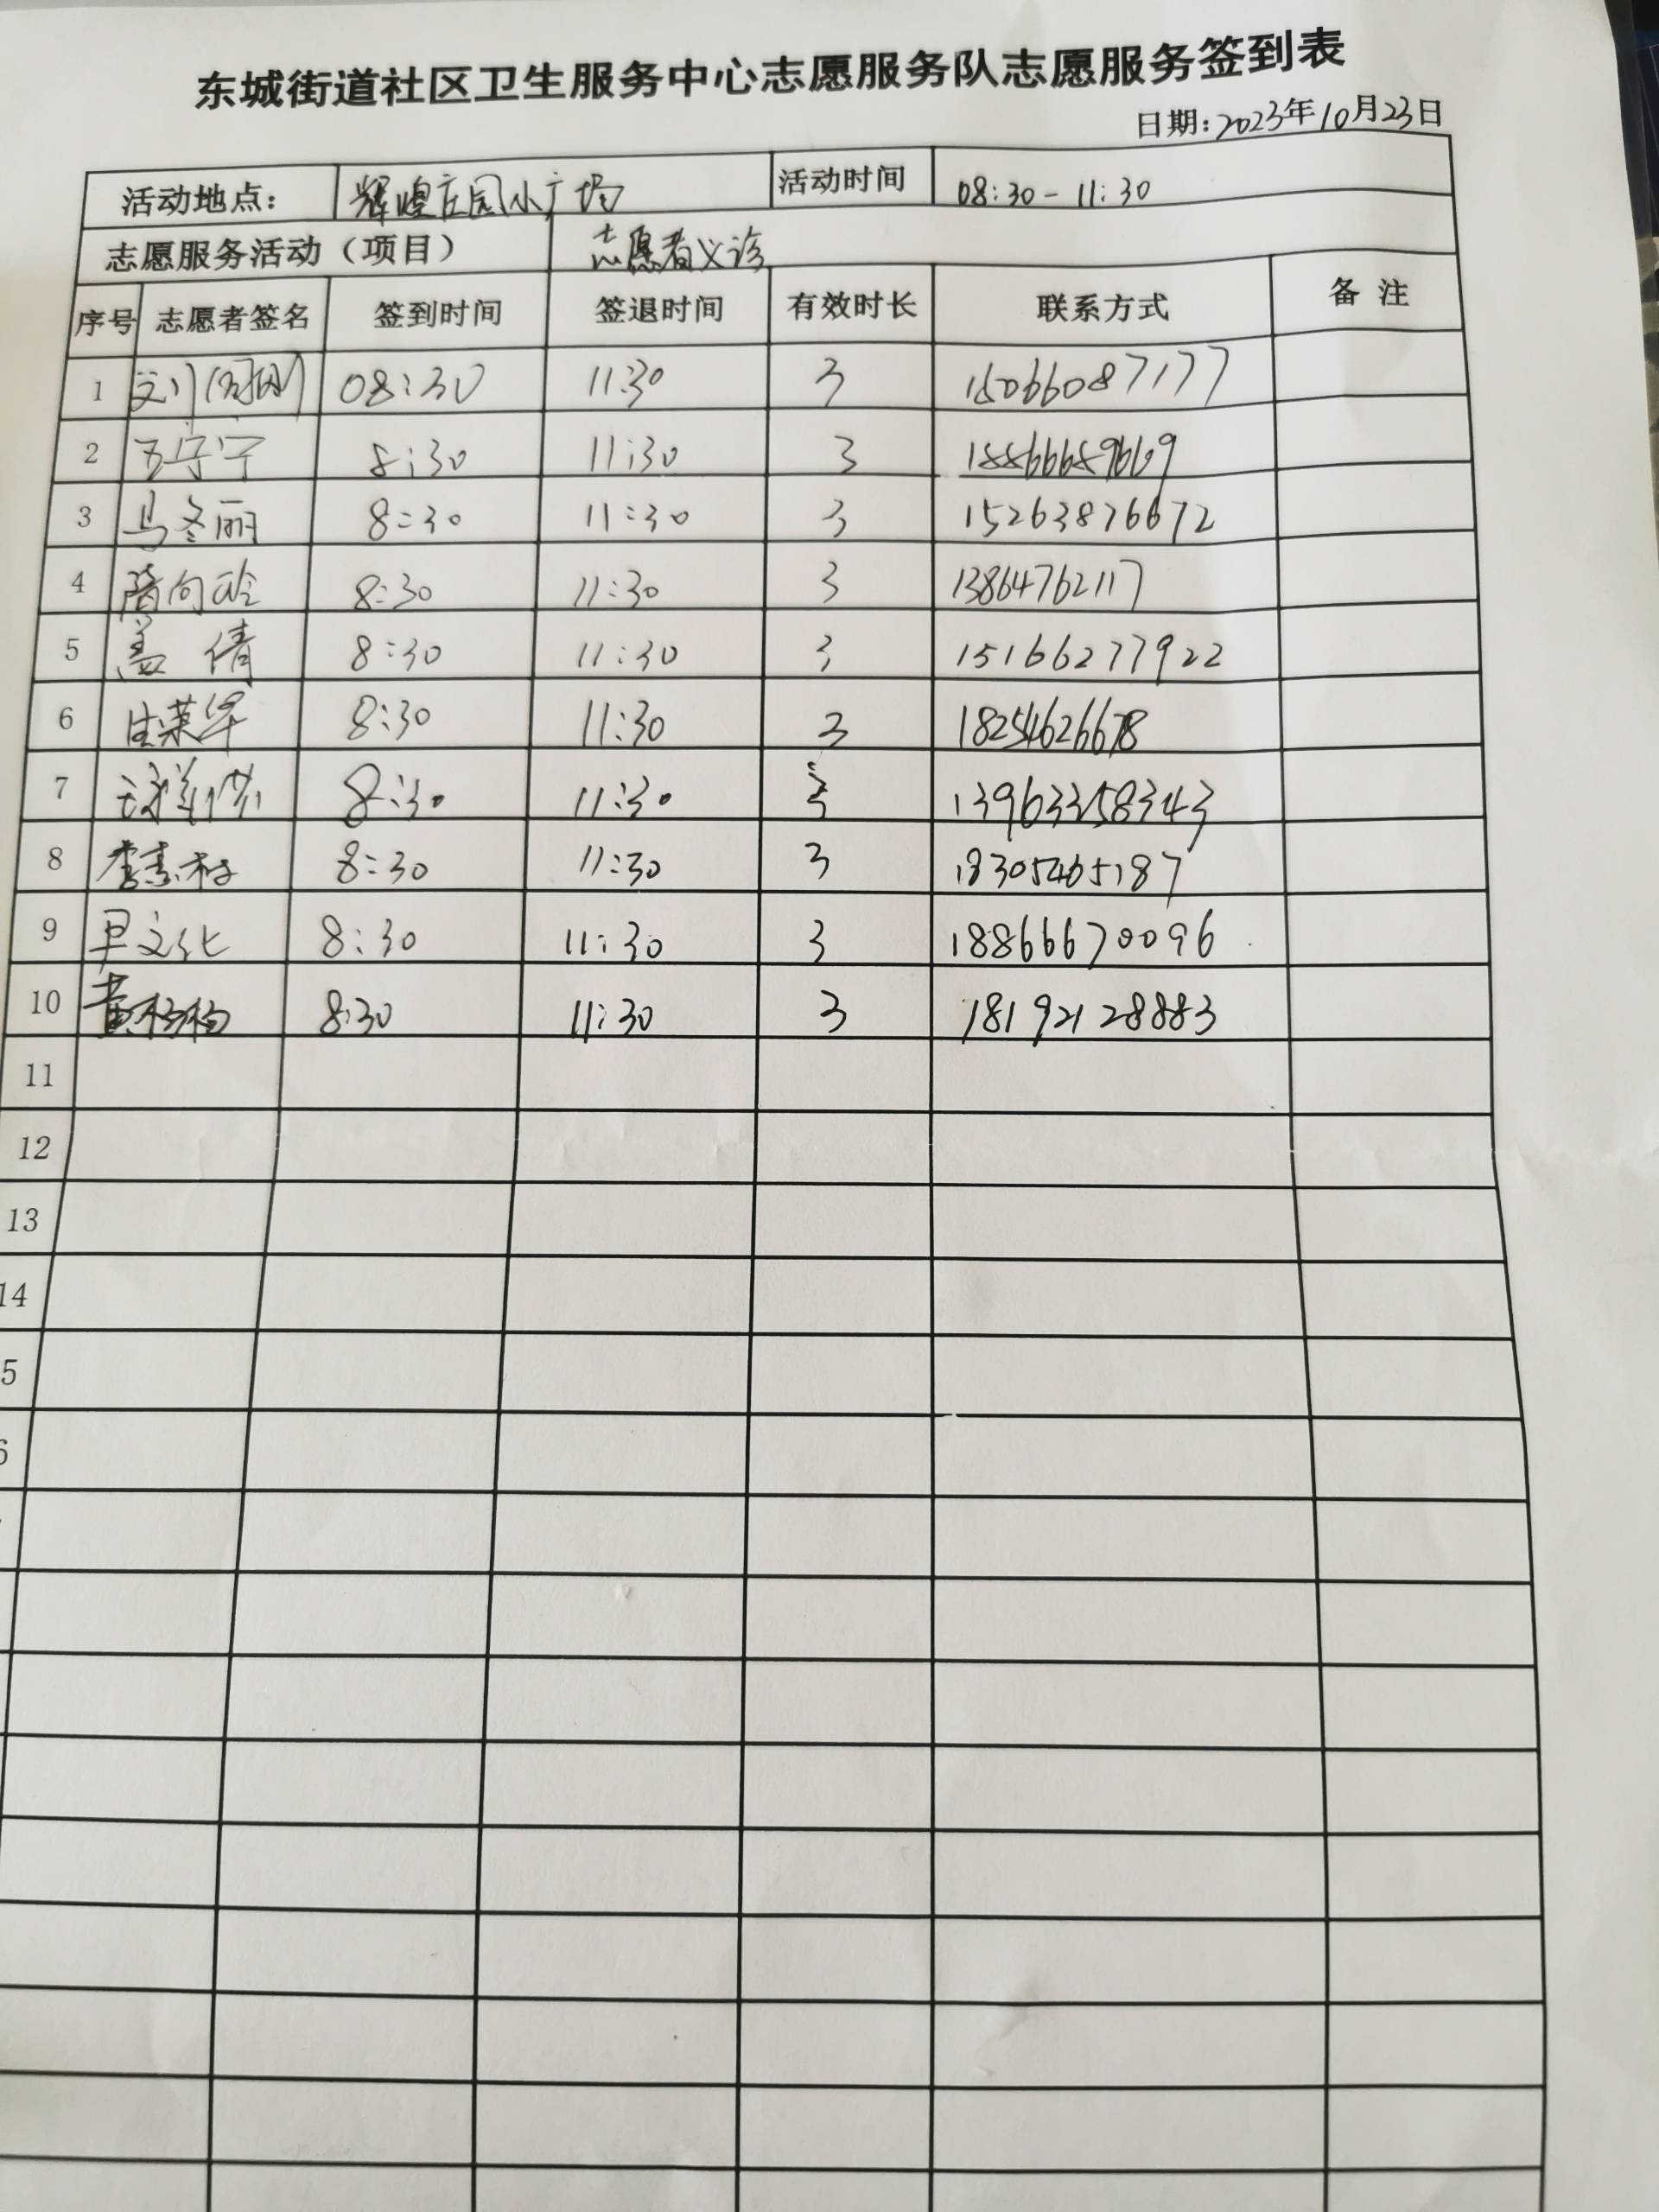 东城街道社区卫生服务中心志愿服务队志愿服务签到表
日期:2023年10月23日
活动地点: 辉煌庄园小广场 活动时间 08:30-11:30
志愿服务活动（项目） 志愿者义诊
序号 志愿者签名 签到时间 签退时间 有效时长 联系方式 备注
1 08:30 11:30 3 15066087177
2 8:30 11:30 3 18866689669
3 马冬丽 8:30 11:30 3 15263876672
4 隋向玲 8:30 11:30 3 13864762117
5 盖倩 8:30 11:30 3 15166277922
6 生荣华 8:30 11:30 3 18254626678
7 8:30 11:30 3 13963358343
8 8:30 11:30 3 18305465187
9 8:30 11:30 3 18866670096
10 黄杨杨 8:30 11:30 3 18192128883
11
12
13
14
5
6